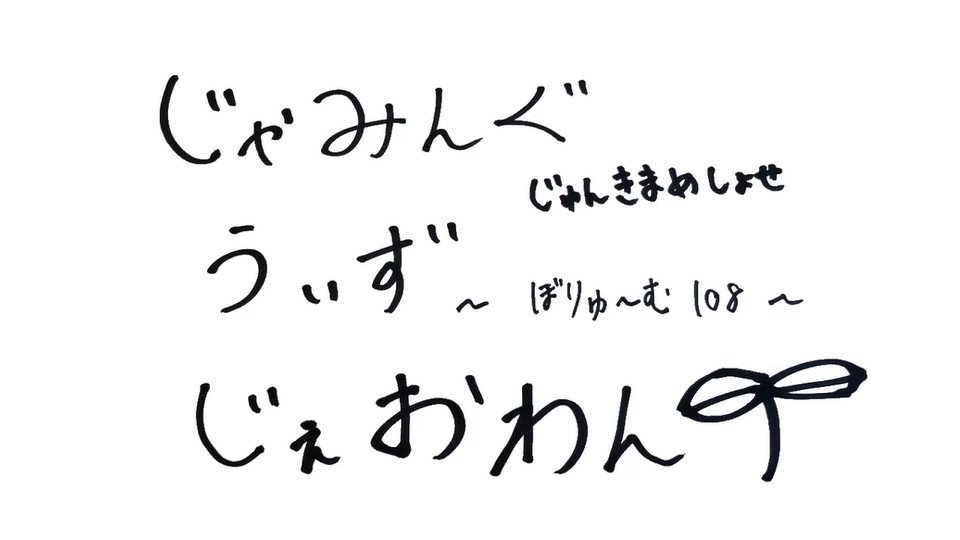 じゃみんぐ
じゅんきまめしょせ
うぃず
～ ぼりゅ～む 108 ～
じぇおわん